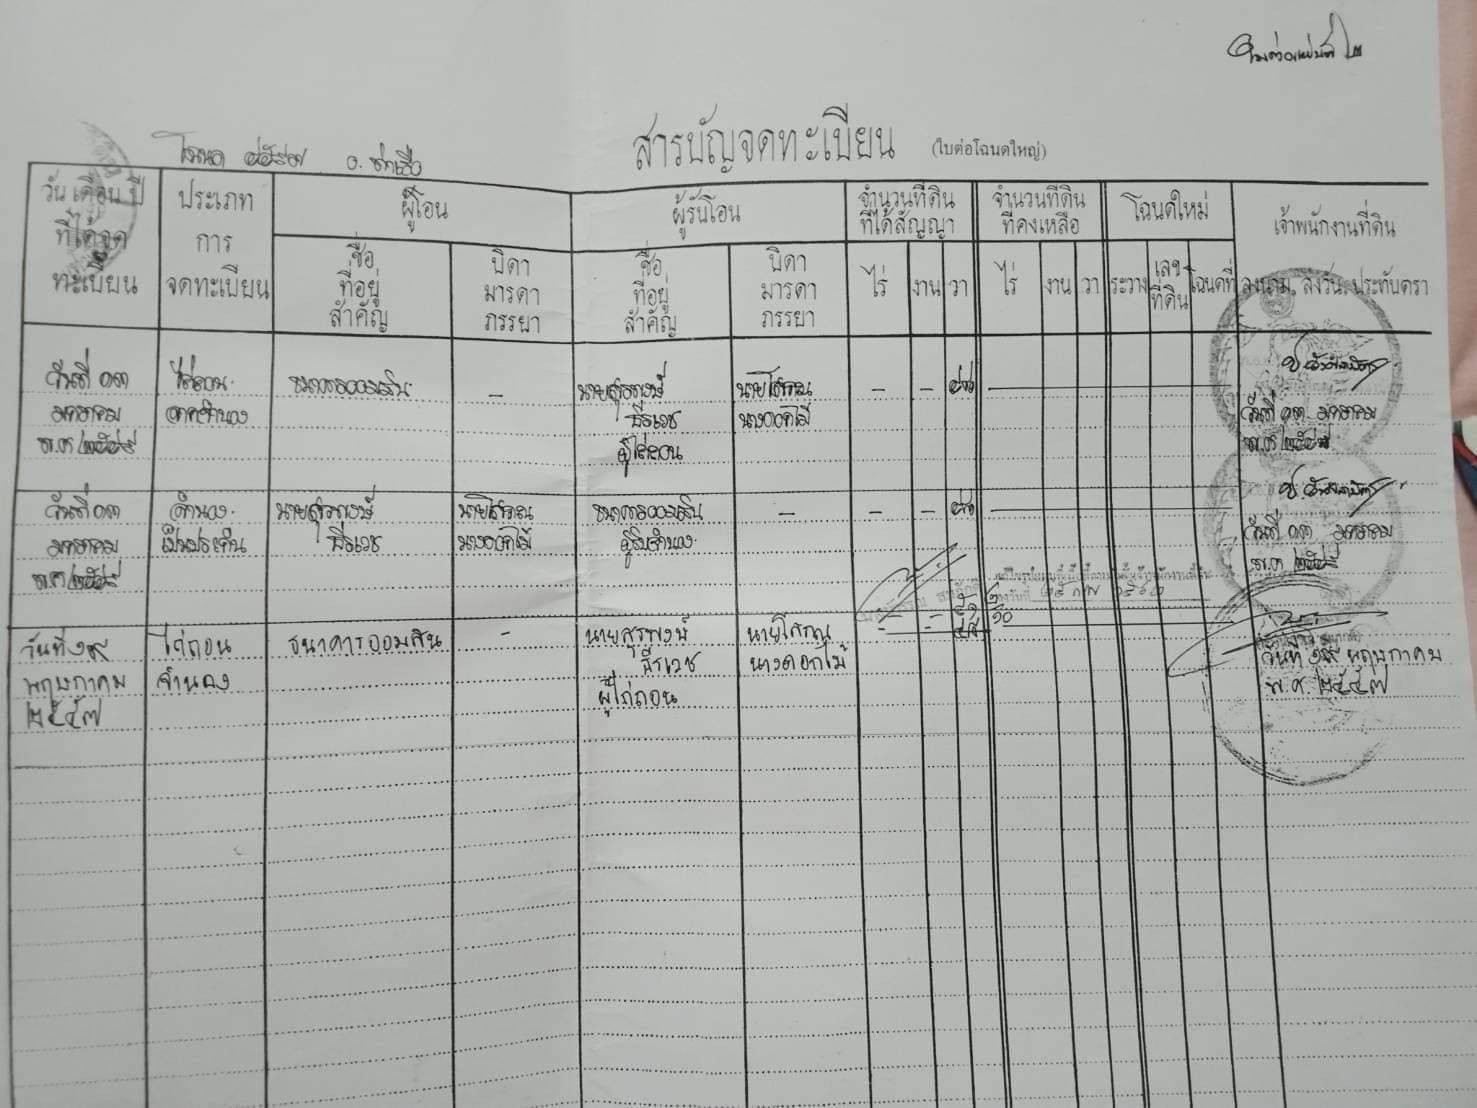 ใบต่อแผ่นที่ ๒
โฉนด
สารบัญจดทะเบียน (ใบต่อโฉนดใหญ่)
วัน เดือน ปี ที่ได้จด ทะเบียน
ประเภท การ จดทะเบียน
ผู้โอน
ผู้รับโอน
จำนวนที่ดิน ที่ได้สัญญา
จำนวนที่ดิน ที่คงเหลือ
โฉนดใหม่
เจ้าพนักงานที่ดิน
ชื่อ ที่อยู่ สำคัญ
บิดา มารดา ภรรยา
ชื่อ ที่อยู่ สำคัญ
บิดา มารดา ภรรยา
ไร่ งาน วา
ไร่ งาน วา
ระวาง เลขที่ดิน โฉนดที่
ลงนาม, ลงวัน, ประทับตรา
วันที่ ๑๓ ไถ่ถอน ธนาคารออมสิน – นายสุรพงษ์ นายโสภณ – –
มกราคม จากจำนอง ธีรเวช นางดอกไม้ วันที่ ๑๓ มกราคม
ผู้ไถ่ถอน
วันที่ ๑๓ จำนอง นายสุรพงษ์ นายโสภณ ธนาคารออมสิน – – –
มกราคม เป็นประกัน ธีรเวช นางดอกไม้ ผู้รับจำนอง วันที่ ๑๓ มกราคม
วันที่ ๑๙ ไถ่ถอน ธนาคารออมสิน – นายสุรพงษ์ นายโสภณ – –
พฤษภาคม จำนอง ธีรเวช นางดอกไม้ วันที่ ๑๙ พฤษภาคม
๒๕๔๗ ผู้ไถ่ถอน พ.ศ. ๒๕๔๗